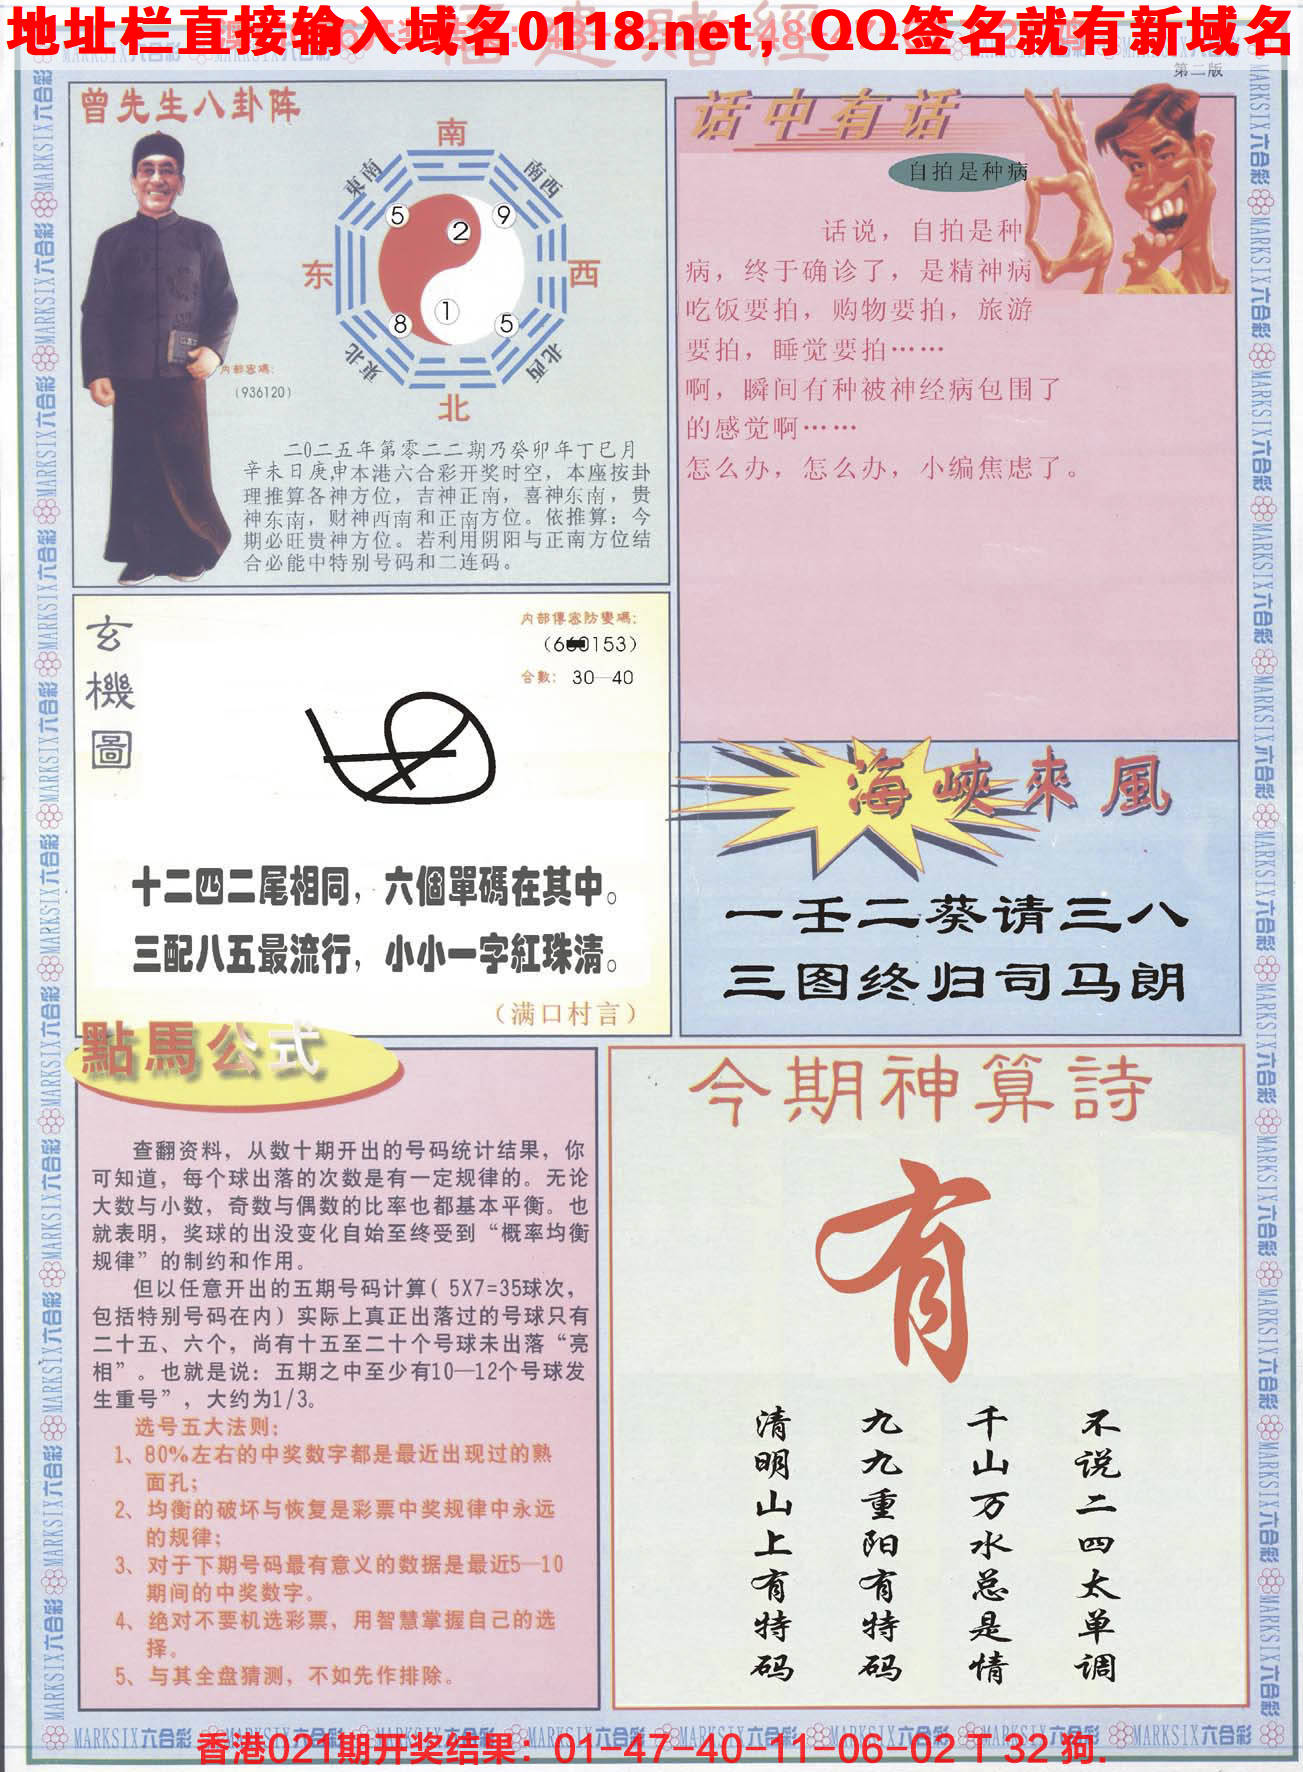 地址栏直接输入域名0118.net，QQ签名就有新域名
福建賭經
第二版
曾先生八卦阵
南
東南
南西
5
9
2
东
西
1
8
5
東北
北西
北
内部密碼:
(936120)
二0二五年第零二二期乃癸卯年丁巳月
辛未日庚申本港六合彩开奖时空，本座按卦
理推算各神方位，吉神正南，喜神东南，贵
神东南，财神西南和正南方位。依推算：今
期必旺贵神方位。若利用阴阳与正南方位结
合必能中特别号码和二连码。
话中有话
自拍是种病
话说，自拍是种
病，终于确诊了，是精神病
吃饭要拍，购物要拍，旅游
要拍，睡觉要拍……
啊，瞬间有种被神经病包围了
的感觉啊……
怎么办，怎么办，小编焦虑了。
玄機圖
内部傳密防變碼:
合數: 30—40
十二四二尾相同，六個單碼在其中。
三配八五最流行，小小一字紅珠清。
（满口村言）
海峽來風
一壬二葵请三八
三图终归司马朗
點馬公式
查翻资料，从数十期开出的号码统计结果，你
可知道，每个球出落的次数是有一定规律的。无论
大数与小数，奇数与偶数的比率也都基本平衡。也
就表明，奖球的出没变化自始至终受到“概率均衡
规律”的制约和作用。
但以任意开出的五期号码计算( 5X7=35球次，
包括特别号码在内）实际上真正出落过的号球只有
二十五、六个，尚有十五至二十个号球未出落“亮
相”。也就是说：五期之中至少有10—12个号球发
生重号”，大约为1/3。
选号五大法则：
1、80%左右的中奖数字都是最近出现过的熟
面孔；
2、均衡的破坏与恢复是彩票中奖规律中永远
的规律；
3、对于下期号码最有意义的数据是最近5—10
期间的中奖数字。
4、绝对不要机选彩票，用智慧掌握自己的选
择。
5、与其全盘猜测，不如先作排除。
今期神算詩
有
不说二四太单调
千山万水总是情
九九重阳有特码
清明山上有特码
MARKSIX六合彩
香港021期开奖结果：01-47-40-11-06-02 T 32 狗.